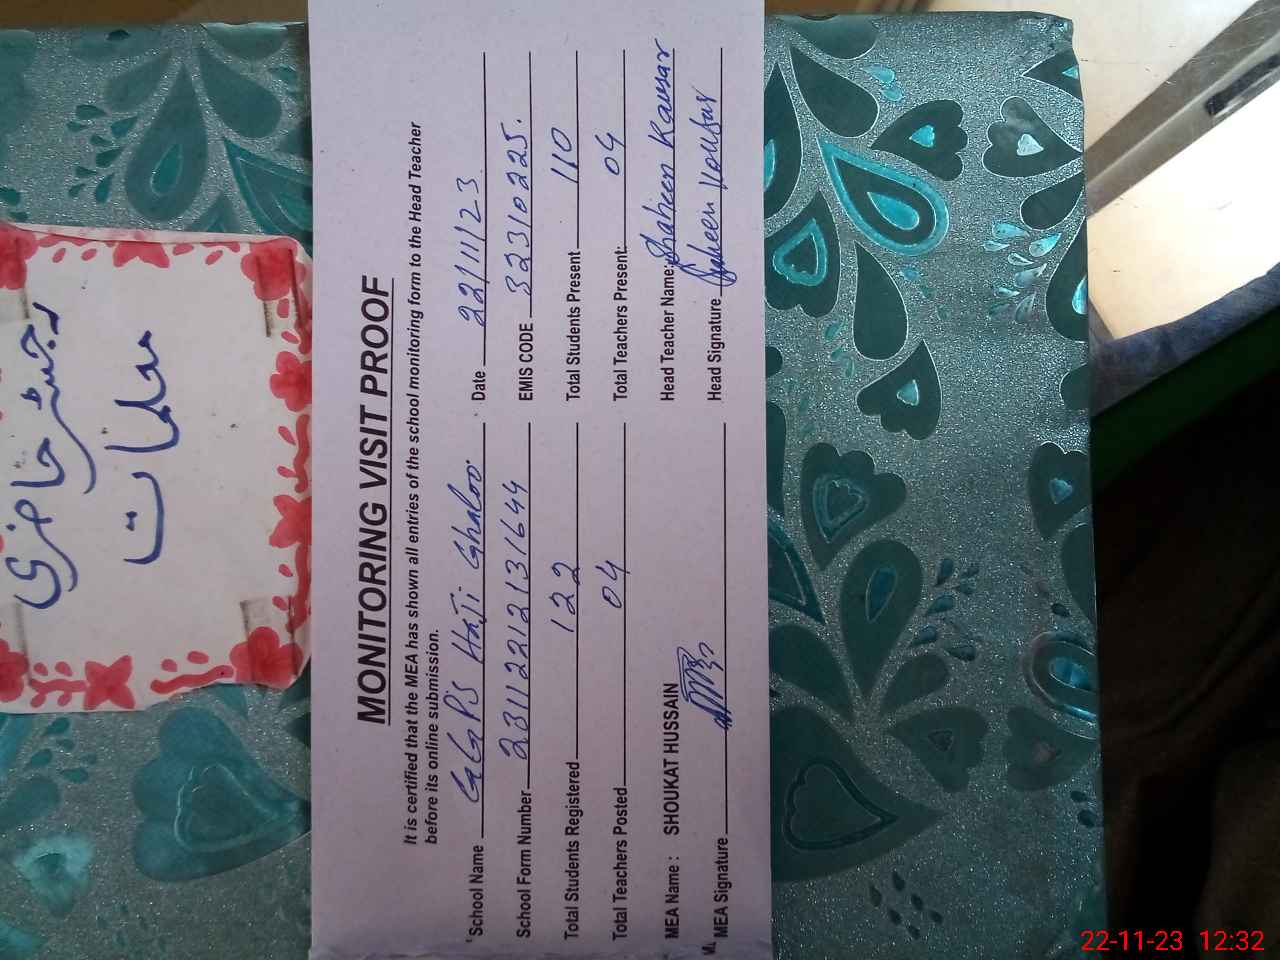 رجسٹر حاضری
معلمات
MONITORING VISIT PROOF
It is certified that the MEA has shown all entries of the school monitoring form to the Head Teacher
before its online submission.
School Name GGPS Haji Ghaloo. Date 22/11/23
School Form Number 23112212131644 EMIS CODE 32310225.
Total Students Registered 122 Total Students Present 110
Total Teachers Posted 04 Total Teachers Present: 04
MEA Name : SHOUKAT HUSSAIN Head Teacher Name: Shaheen Kausar
MEA Signature Head Signature Shaheen Kousar
22-11-23 12:32